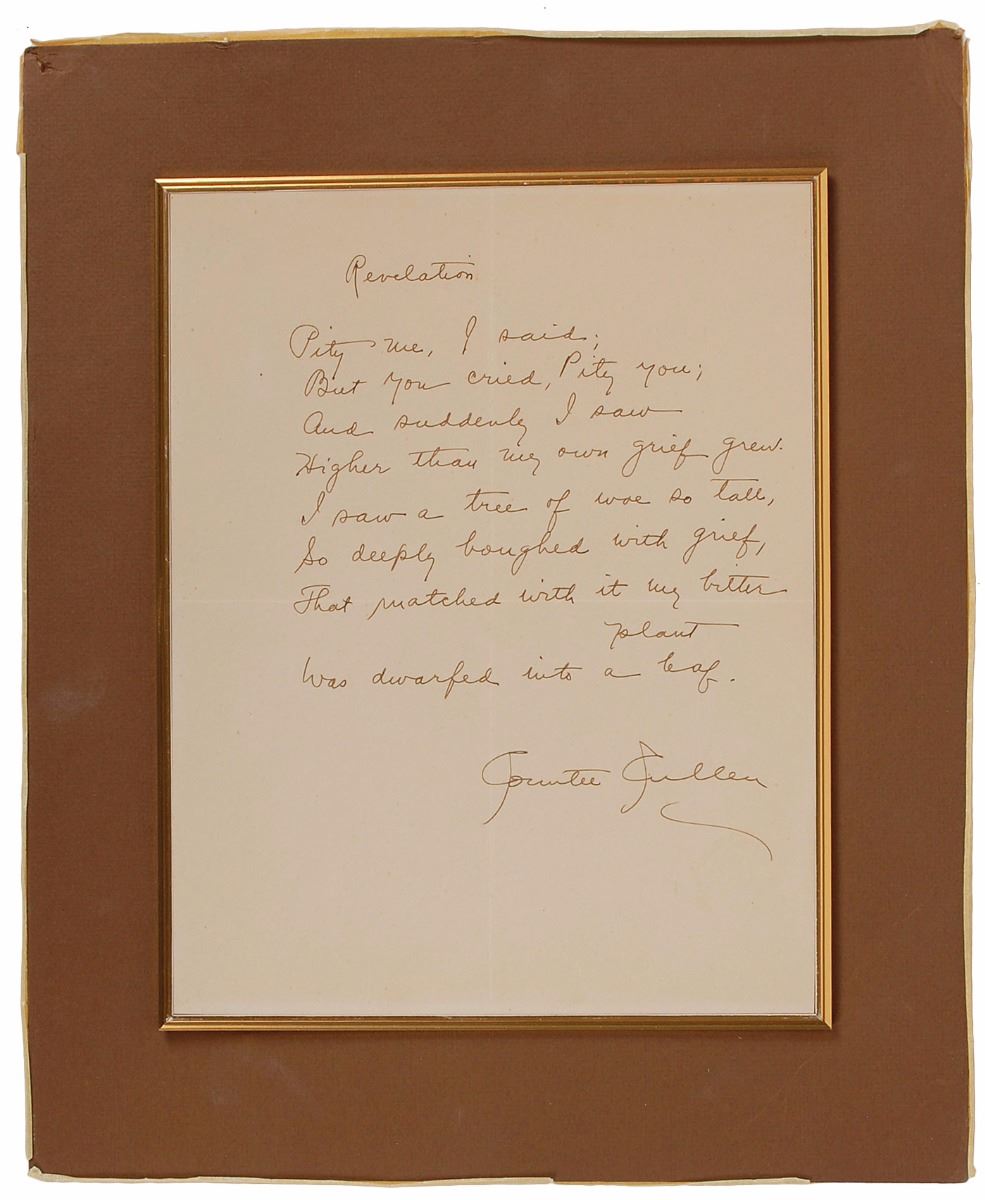 Revelation
Pity me, I said;
But you cried, Pity you;
And suddenly I saw
Higher than my own grief grew.
I saw a tree of woe so tall,
So deeply boughed with grief,
That matched with it my bitter
plant
Was dwarfed into a leaf.
Countee Cullen